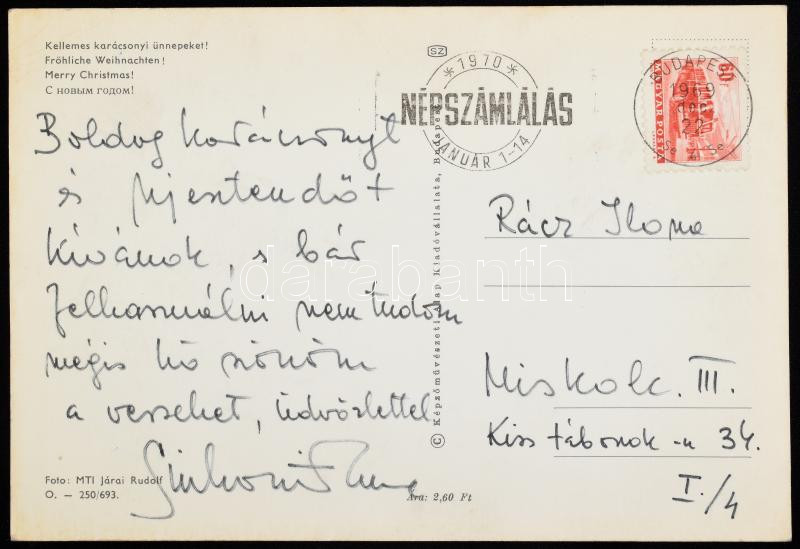 Kellemes karácsonyi ünnepeket!
Fröhliche Weihnachten!
Merry Christmas!
С новым годом!
Boldog karácsonyt
és újesztendőt
kívánok, s bár
felhasználni nem tudom
mégis köszönöm
a verseket, üdvözlettel
Sinkovits Imre
Foto: MTI Járai Rudolf
O. — 250/693.
Ára: 2,60 Ft
© Képzőművészeti Alap Kiadóvállalata, Budapest
SZ
* 1970 *
NÉPSZÁMLÁLÁS
JANUÁR 1-14
BUDAPEST
1969
22
60 f
MAGYAR POSTA
Rácz Ilona
Miskolc. III.
Kiss tábornok-u 34.
I./4
darabanth